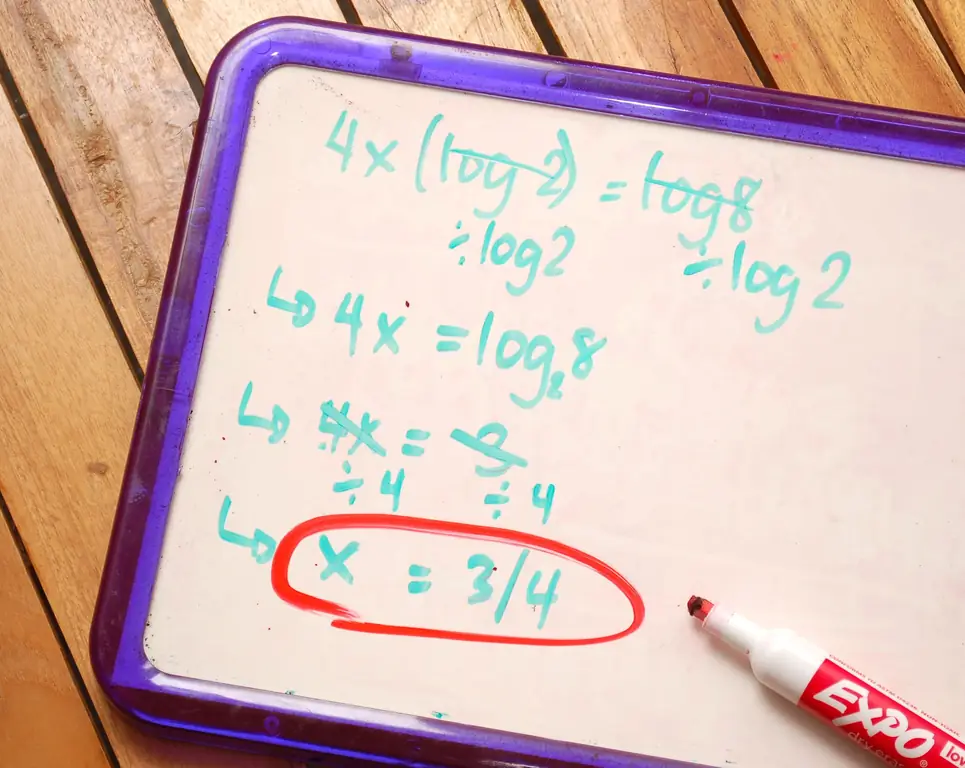 4x (log 2) = log 8
÷log2 ÷log 2
↳ 4x = log₂8
↳ 4x = 3
÷4 ÷4
↳ x = 3/4
EXPO®
low